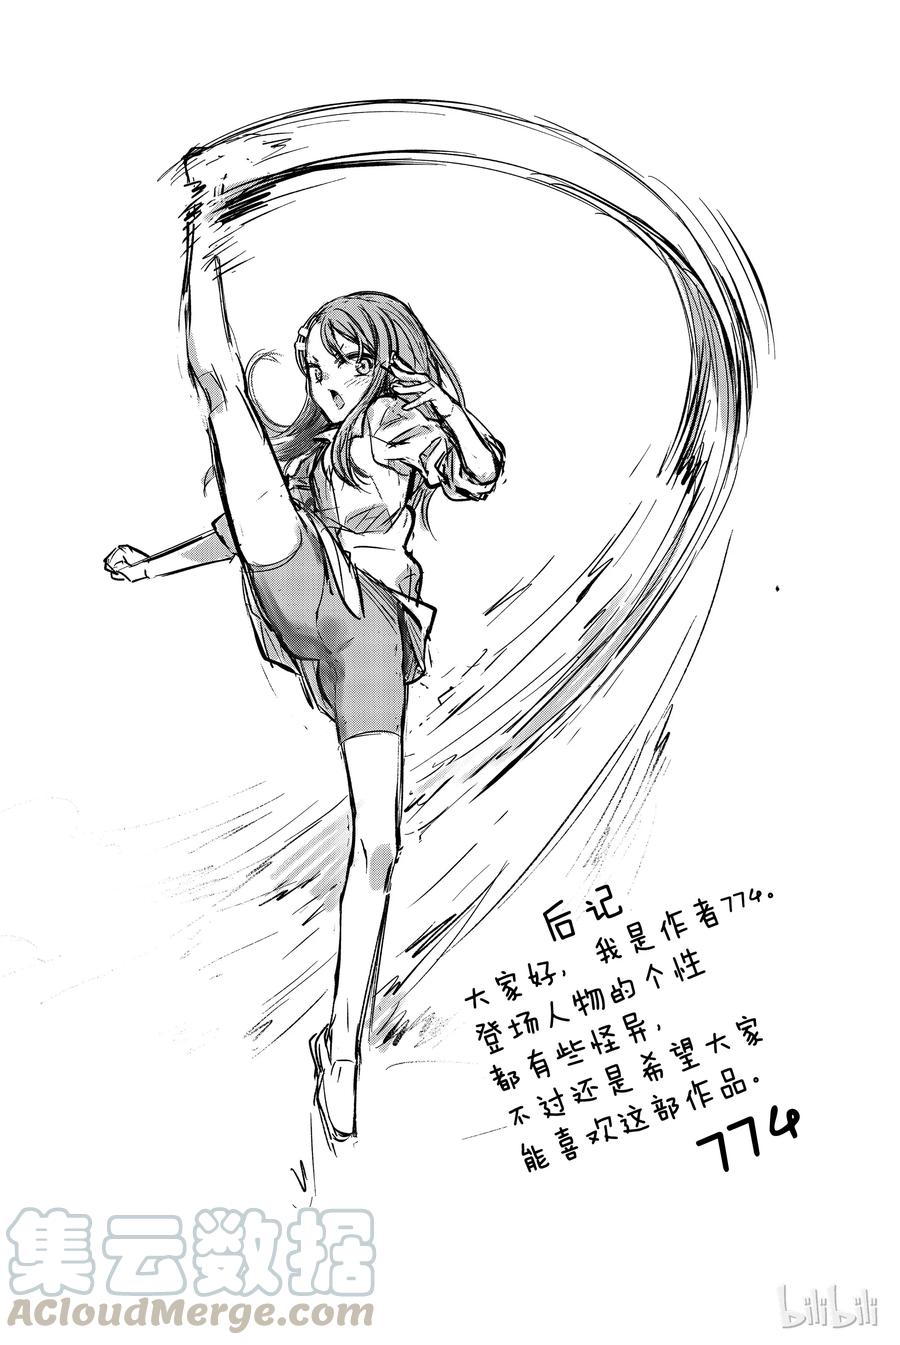 后记
大家好，我是作者774。
登场人物的个性
都有些怪异，
不过还是希望大家
能喜欢这部作品。
774
集云数据
ACloudMerge.com
bilibili